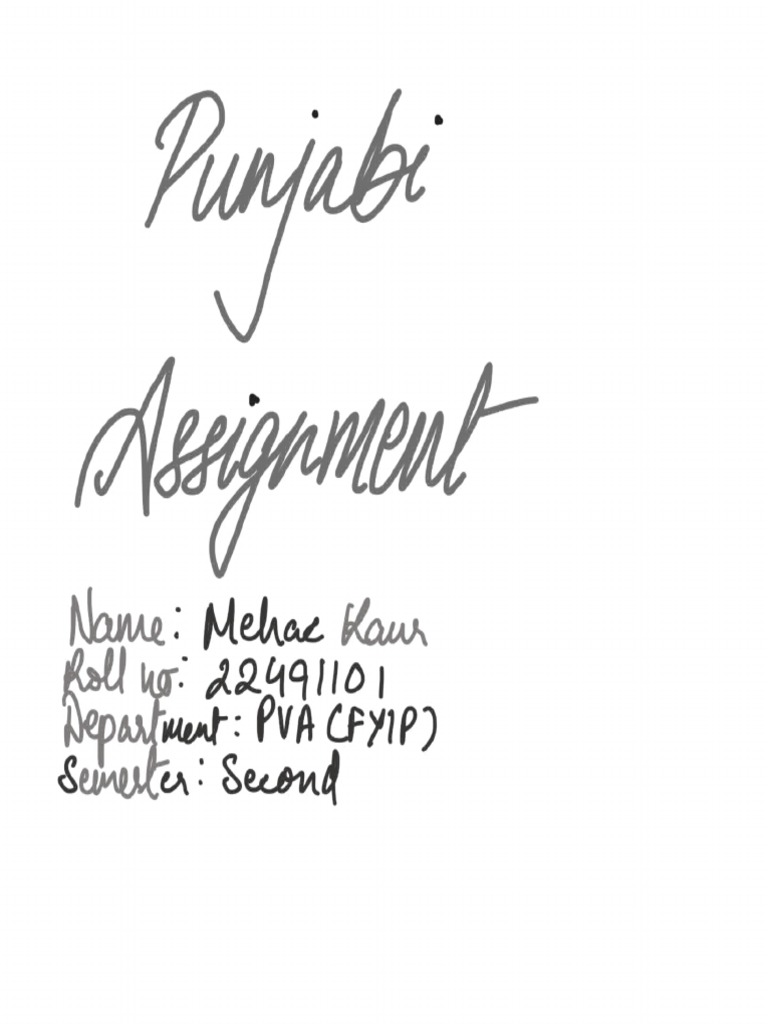 Punjabi
Assignment
Name: Mehac Kaur
Roll no: 22491101
Department: PVA (FYIP)
Semester: Second